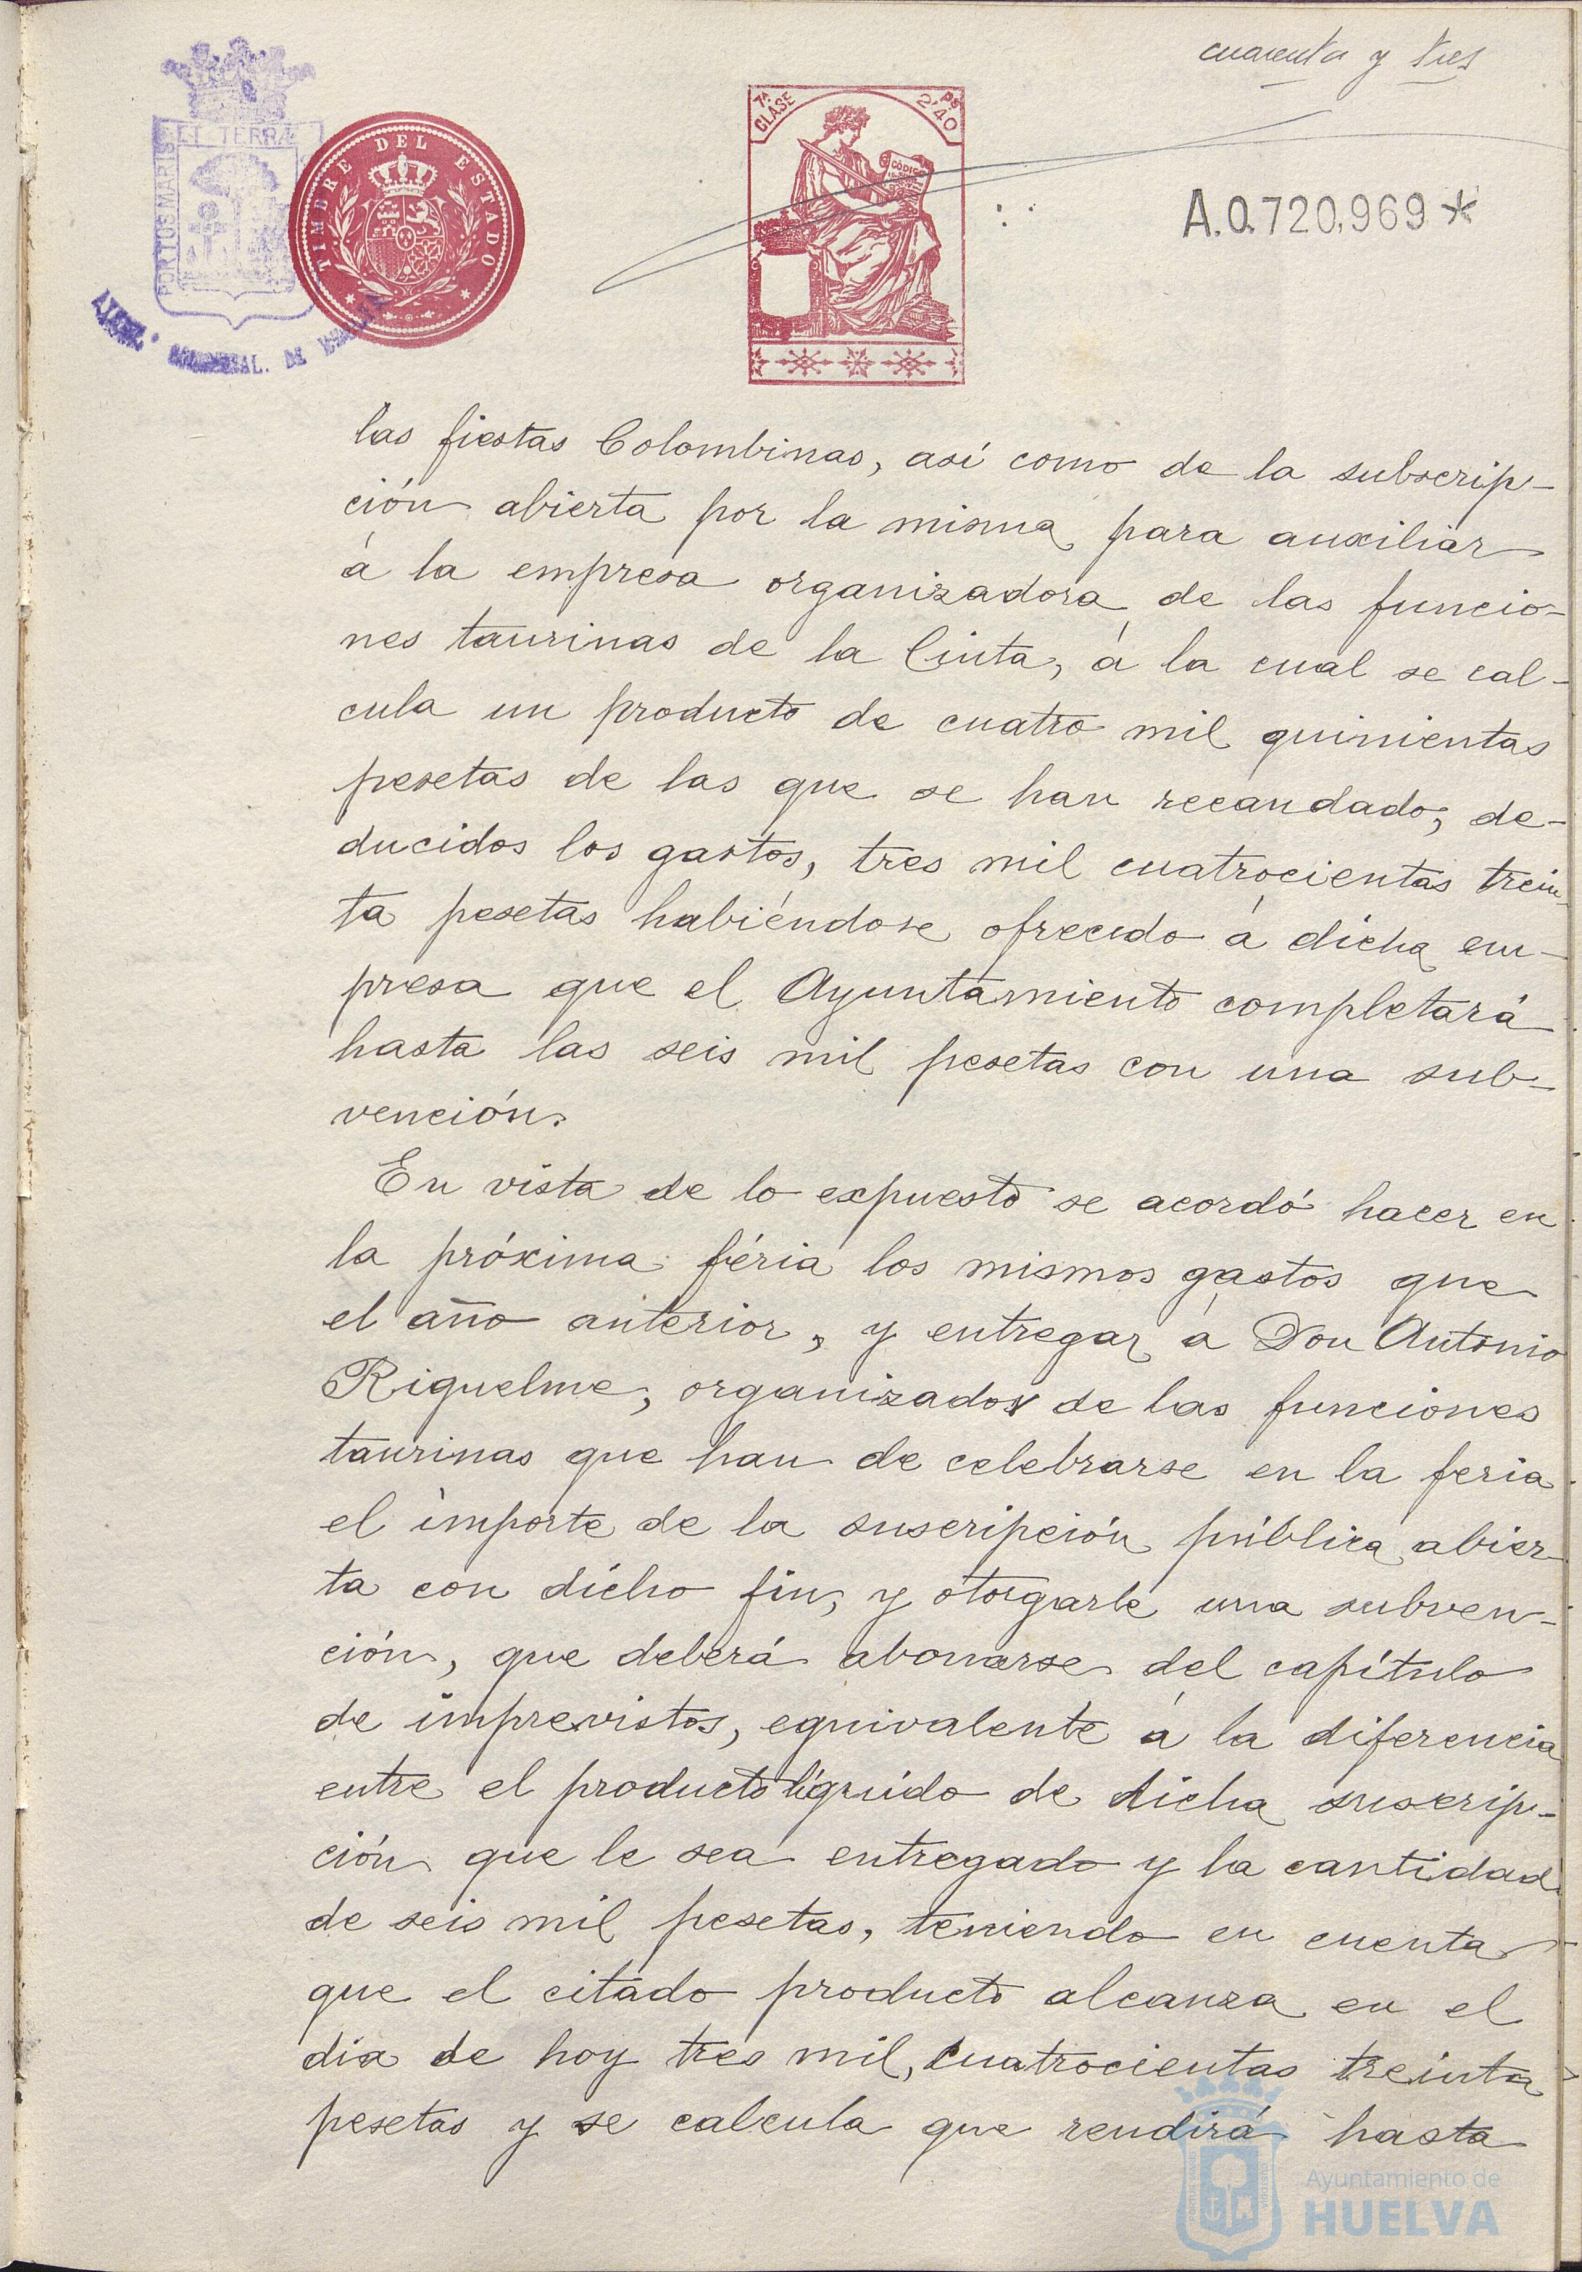 cuarenta y tres
7ª CLASE
2'40 Ps
CÓDIGO
ET TERRÆ
PORTUS MARIS
TIMBRE DEL ESTADO
A.0.720,969*
las fiestas Colombinas, así como de la subscrip-
ción abierta por la misma para auxiliar
á la empresa organizadora de las funcio-
nes taurinas de la Cinta, á la cual se cal-
cula un producto de cuatro mil quinientas
pesetas de las que se han recaudado, de-
ducidos los gastos, tres mil cuatrocientas trein-
ta pesetas habiéndose ofrecido á dicha em-
presa que el Ayuntamiento completará
hasta las seis mil pesetas con una sub-
vención.
En vista de lo expuesto se acordó hacer en
la próxima féria los mismos gastos que
el año anterior, y entregar á Don Antonio
Riquelme, organizador de las funciones
taurinas que han de celebrarse en la feria
el importe de la suscripción pública abier-
ta con dicho fin, y otorgarle una subven-
ción, que deberá abonarse del capítulo
de imprevistos, equivalente á la diferencia
entre el producto líquido de dicha suscrip-
ción que le sea entregado y la cantidad
de seis mil pesetas, teniendo en cuenta
que el citado producto alcanza en el
dia de hoy tres mil, cuatrocientas treinta
pesetas y se calcula que rendirá hasta
Ayuntamiento de
HUELVA